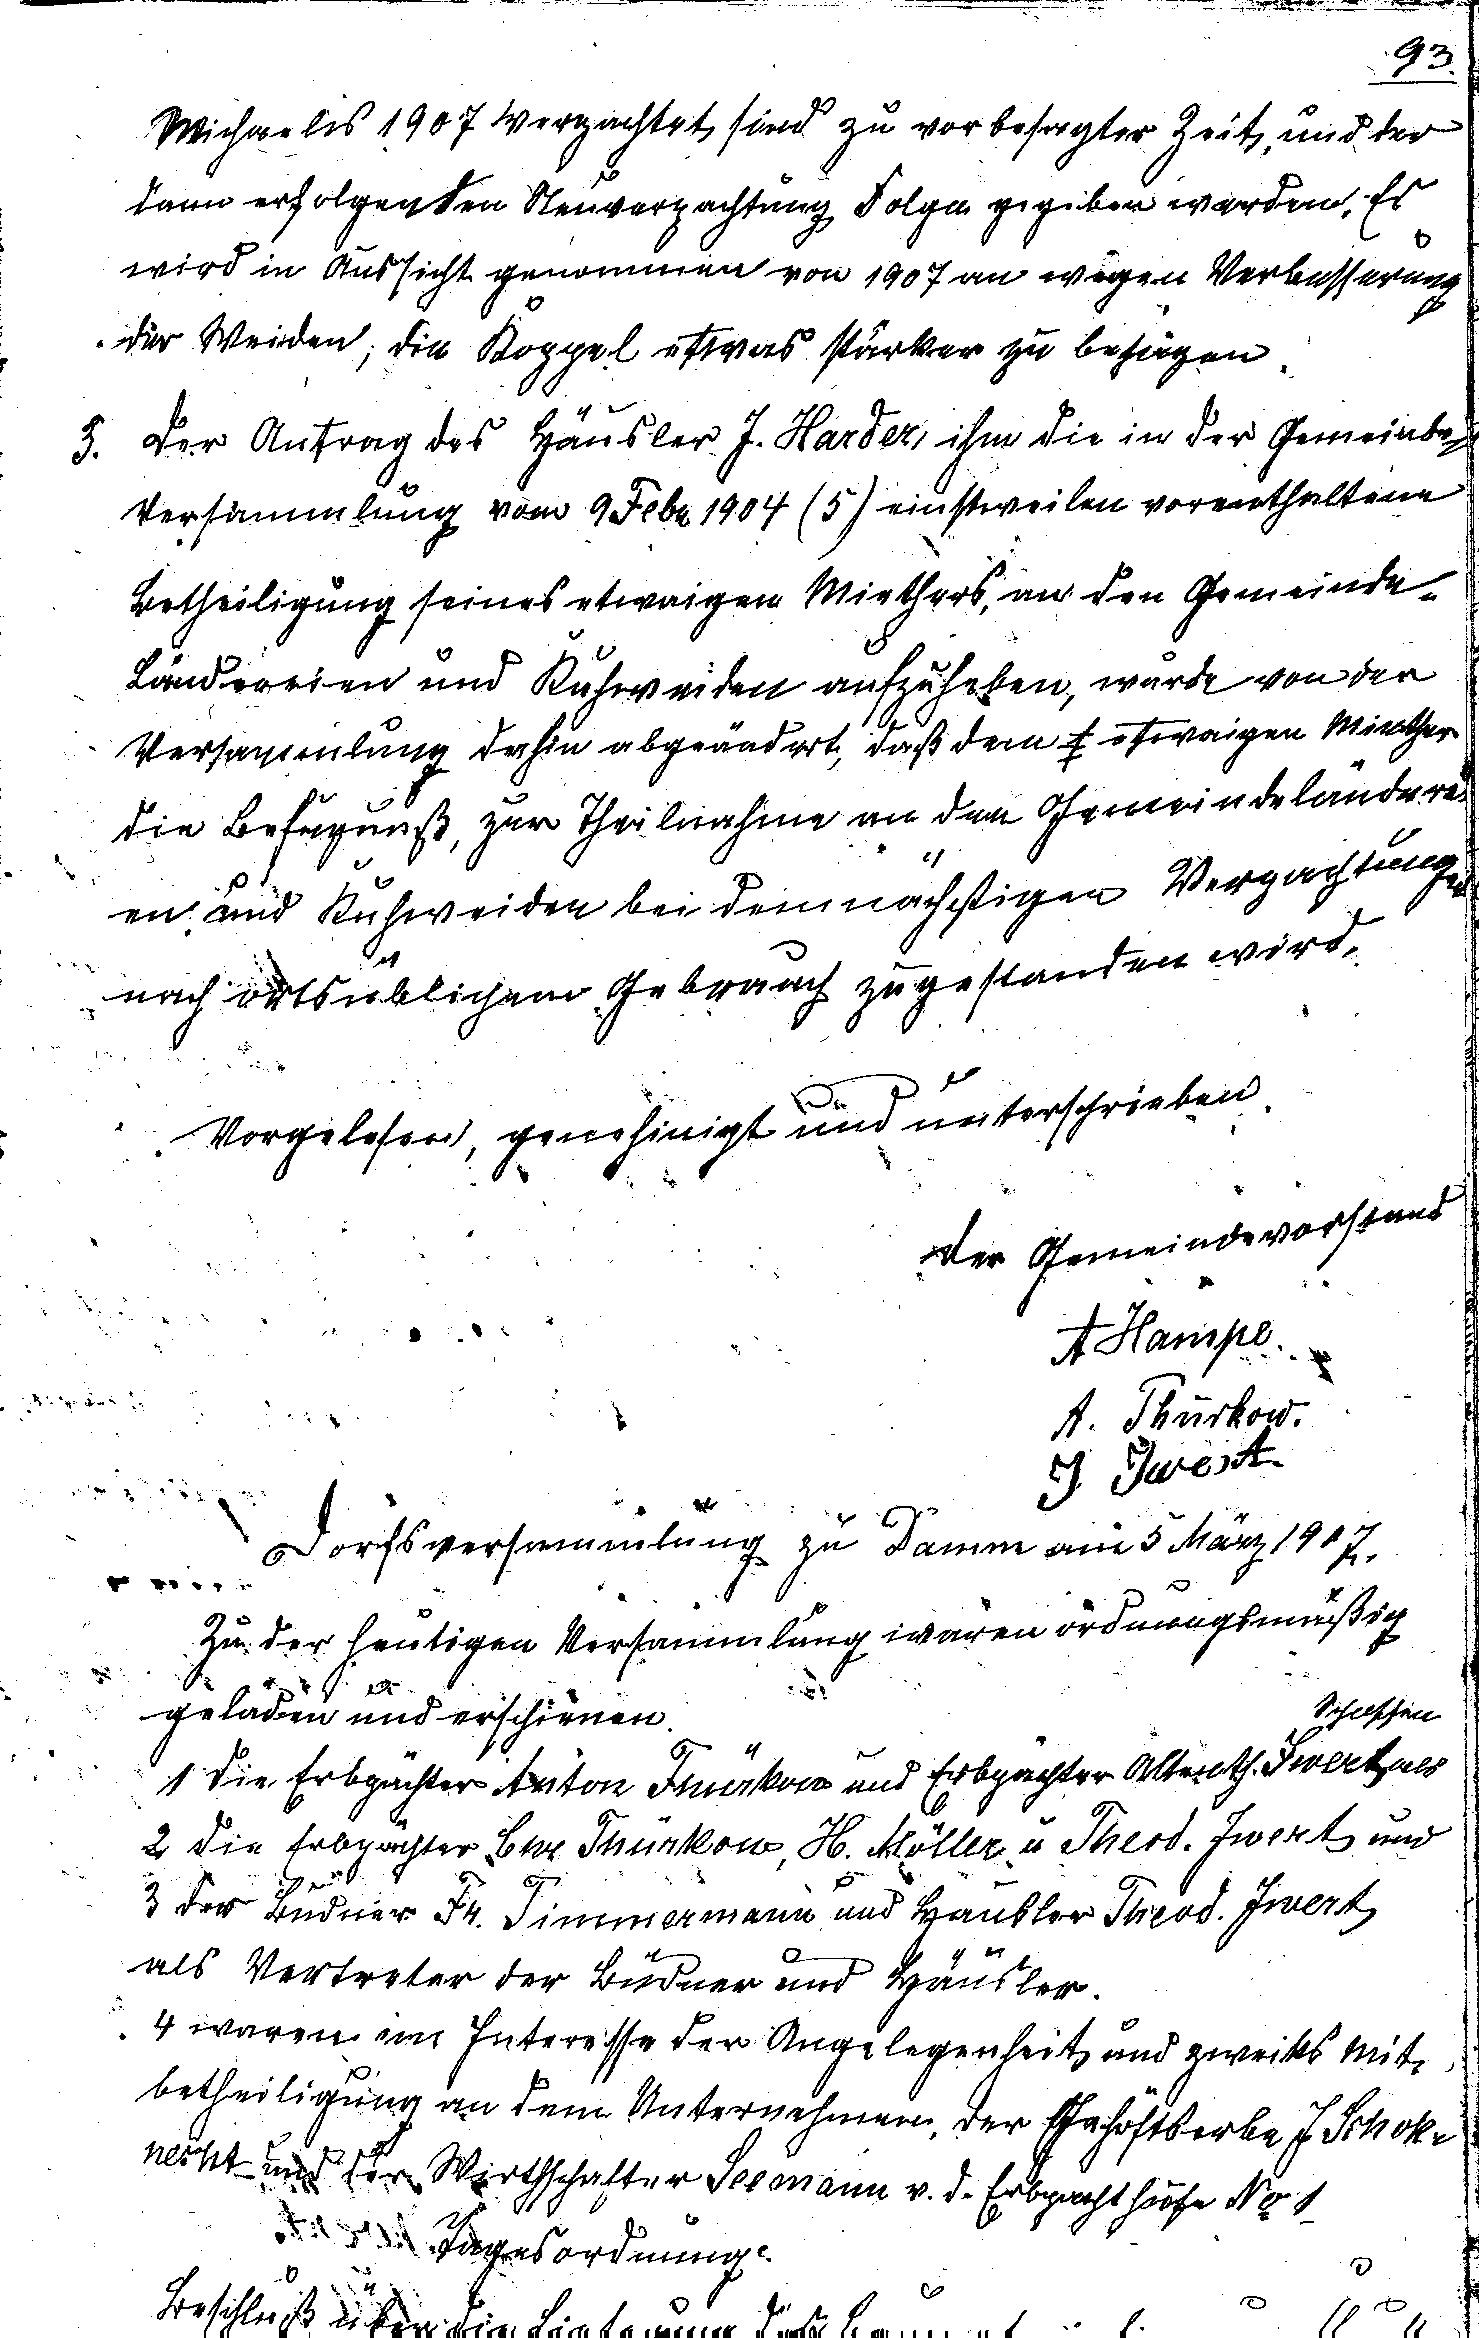 93.
Michaelis 1907 verpachtet sind zu vorbesagter Zeit, und der
dann erfolgenden Neuverpachtung Folge gegeben werden. Es
wird in Aussicht genommen von 1907 an wegen Verbesserung
der Weiden, die Koppel etwas stärker zu
3. Der Antrag des Häusler J. Harder, ihm die in der Gemeinde
Versammlung vom 9 Febr 1904 (5) einstweilen vorenthaltene
Betheiligung seines etwaigen Miethers, an den Gemeinde-
Ländereien und Kuhweiden aufzuheben, wurde von der
Versammlung dahin abgeändert, daß dem etwaigen Miether
die Befugniß, zur Theilnahme an den Gemeindeländerei
en und Kuhweiden bei demnächstigen Verpachtungen
nach ortsüblichem Gebrauch zugestanden wird.
Vorgelesen, genehmigt und unterschrieben.
Der Gemeindevorstand
A Hampe.
A. Thürkow.
J Iwert
Dorfsversammlung zu Damm am 5 März 1907.
Zu der heutigen Versammlung waren ordnungsmäßig
geladen und erschienen.
Schulzen
1 Die Erbpächter Anton Thürkow und Erbpächter Iwert als
2 die Erbpächter Chr Thürkow, H. Möller u Theod. Iwert und
3 der Büdner Fr. Timmermann und Häusler Theod. Iwert
als Vertreter der Büdner und Häusler.
4 waren im Interesse der Angelegenheit und zwecks Mit-
betheiligung an dem Unternehmen, der Gehöftserbe J Schok-
necht und der Wirthschafter Seemann v. d. Erbpachthufe No 1
Tagesordnung.
Beschluß über die Lieferung des